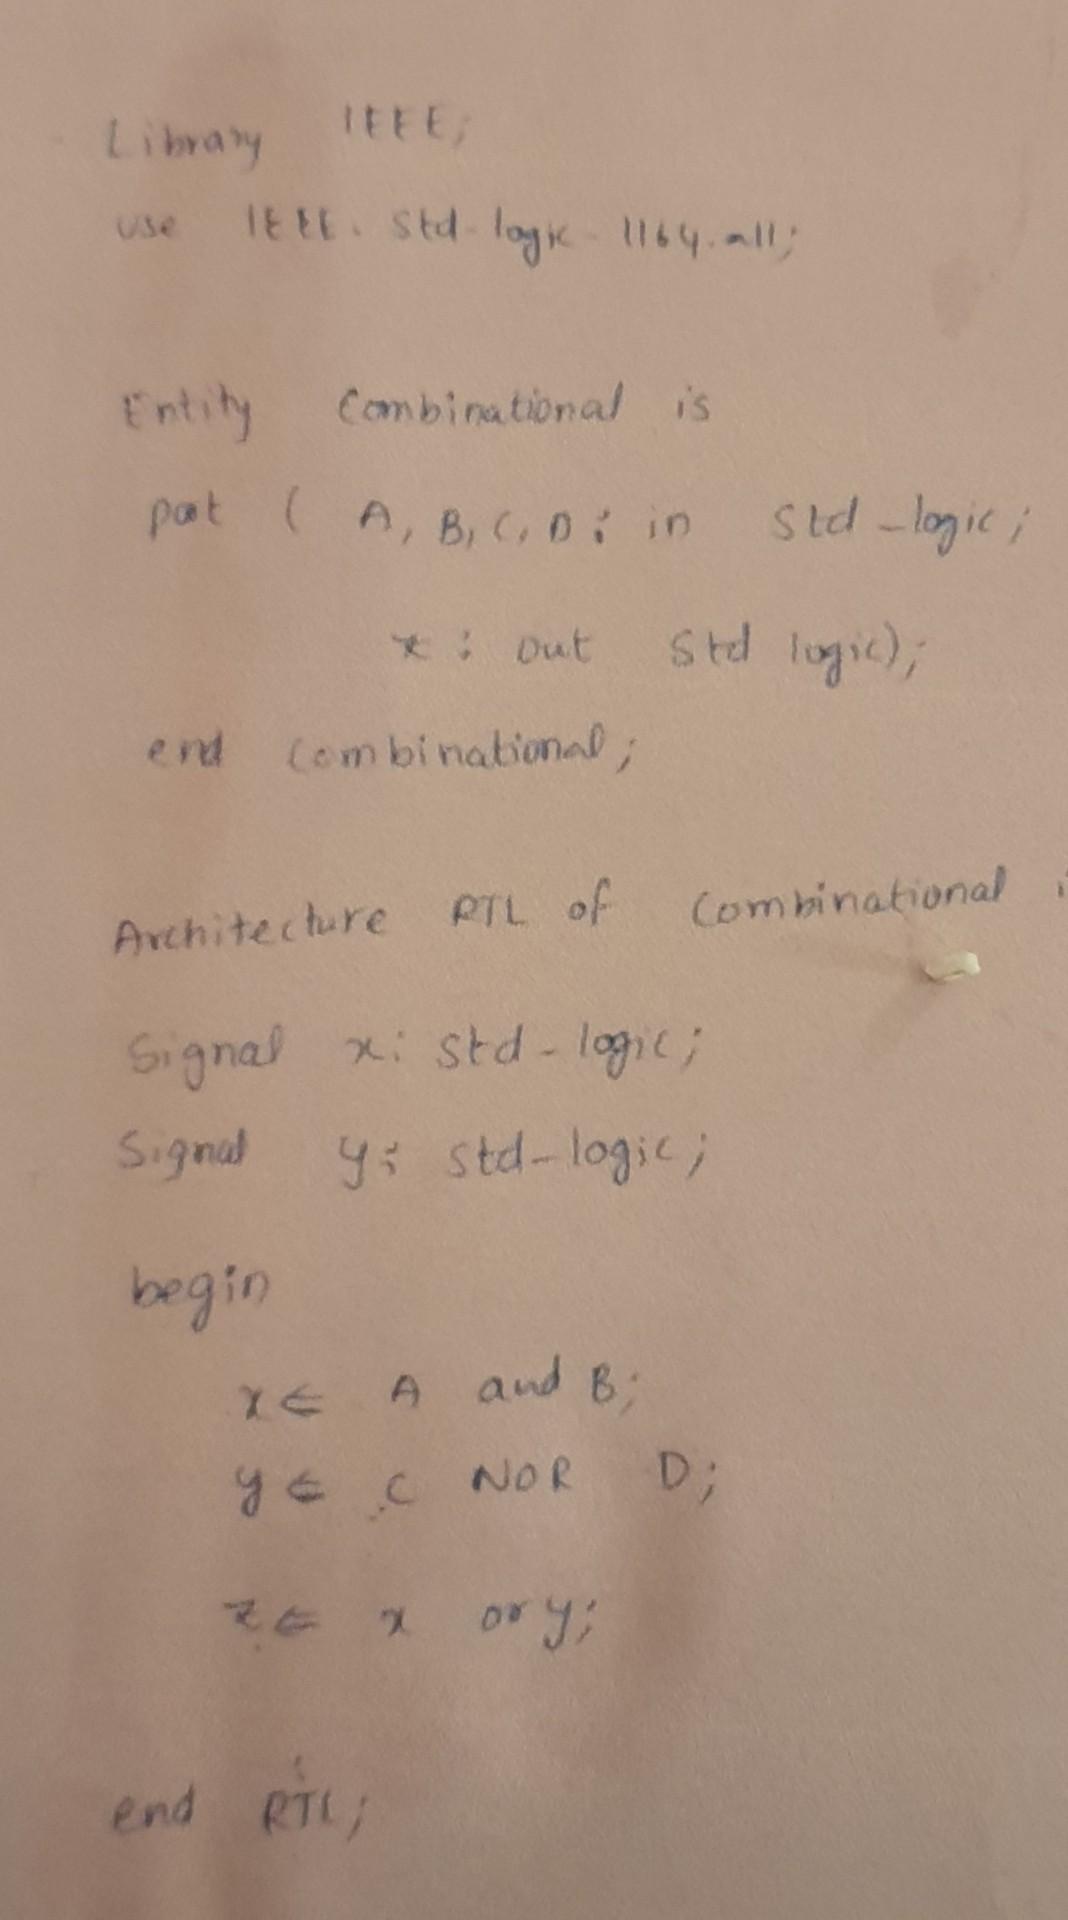 Library IEEE;
use IEEE. Std-logic-1164.all;
Entity Combinational is
port ( A, B, C, D : in Std_logic;
x : out Std logic);
end Combinational;
Architecture RTL of Combinational
Signal x: std-logic;
Signal y: std-logic;
begin
x ⇐ A and B;
y ⇐ C NOR D;
z ⇐ x or y;
end RTL;